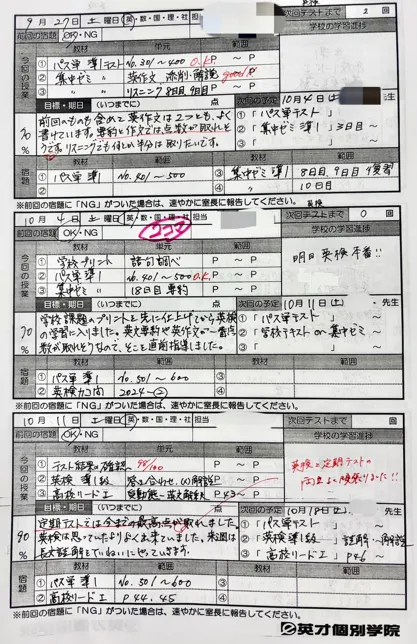 9月27日 土曜日 英・数・国・理・社 担当
次回テストまで 2回
前回の宿題 OK・NG
学校の学習進捗
今回の授業
教材 単元 範囲
① パス単テスト No.301~400 O.K. P ~ P
② 集中ゼミ 英作文 添削・解説 good! P ~ P
③ 〃 リスニング 8日目 9日目 P ~ P
目標・期日 (いつまでに) 点
次回の予定 10月4日(土)
70%
前回のものも含めて英作文は2つとも、よく
書けています。要約と作文では点数が取れそ
うです。リスニングでも何とか半分は取りたいです。
① 「パス単テスト」 ~
② 「集中ゼミ準1」 3日目 ~
③ 「 」 ~
宿題
教材 範囲 教材 範囲
① パス単 準1 No.401~500
② 
③ 集中ゼミ準1 8日目、9日目 復習
④ 10日目
※前回の宿題に「NG」がついた場合は、速やかに室長に報告してください。
10月4日 土曜日 英・数・国・理・社 担当
英検
次回テストまで 0回
前回の宿題 OK・NG
2コマ
学校の学習進捗
今回の授業
教材 単元 範囲
① 学校プリント 語句調べ P ~ P
② パス単 準1 No.401~500 O.K. P
③ 集中ゼミ 18日目 要約 P ~ P
明日 英検本番!!
目標・期日 (いつまでに) 点
次回の予定 10月11日(土) ・ 先生
70%
学校課題のプリントを先に仕上げてから英検
の学習に入りました。英文要約や英作文が一番点
数が取れそうなので、そこを直前指導しました。
① 「パス単テスト」 ~
② 「学校テキスト or 集中ゼミ ~
③ 「 」 ~
宿題
教材 範囲 教材 範囲
① パス単 準1 No.501~600 ③
② 英検カコ問 2024-② ④
※前回の宿題に「NG」がついた場合は、速やかに室長に報告してください。
10月11日 土曜日 英・数・国・理・社 担当
次回テストまで 回
前回の宿題 OK・NG
学校の学習進捗
今回の授業
教材 単元 範囲
① テスト結果の確認 98/100 P ~ P
② 英検 準1級 答え合わせ、(x)解説 P ~ P
③ 高校リードI 受動態~英文解釈 P43~P
英検と定期テストの
両立をよく頑張りました!!
目標・期日 (いつまでに) 点
次回の予定 10月18日(土) 先生
90%
定期テストでは今までの最高点が取れました。
英検は思っていたよりよく出来ていました。来週は
長文読解をていねいにやっていきます。
① 「パス単テスト」 ~
② 「英検準1級 読解~解説
③ 「高校リードI P46 ~
宿題
教材 範囲 教材 範囲
① パス単 準1 No.501~600 ③
② 高校リードI P44.45 ④
※前回の宿題に「NG」がついた場合は、速やかに室長に報告してください。
英才個別学院